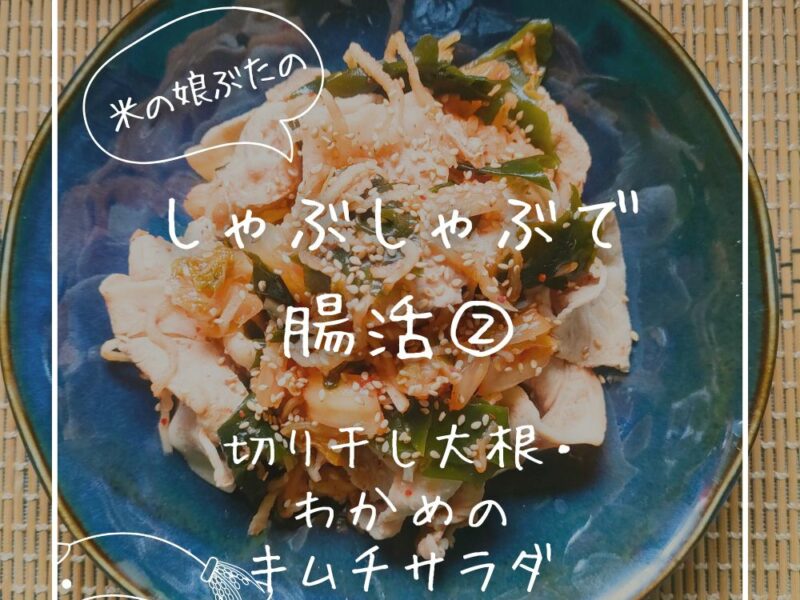 米の娘ぶたの
しゃぶしゃぶで
腸活②
切り干し大根・
わかめの
キムチサラダ